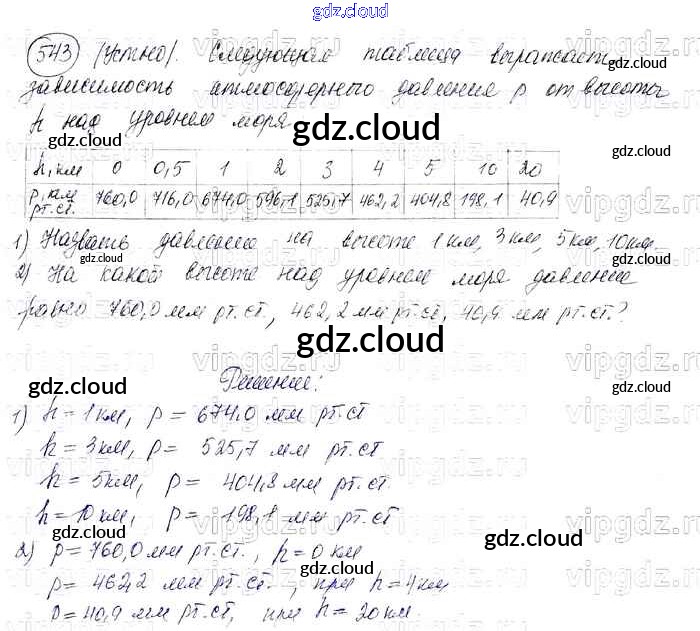 gdz.cloud
543 (Устно). Следующая таблица выражает
зависимость атмосферного давления p от высоты
h над уровнем моря
h, км 0 0,5 1 2 3 4 5 10 20
p, км рт.ст. 760,0 716,0 674,0 596,1 525,7 462,2 404,8 198,1 40,9
1) Назвать давление на высоте 1 км, 3 км, 5 км, 10 км.
2) На какой высоте над уровнем моря давление
равно 760,0 мм рт.ст., 462,2 мм рт.ст, 40,9 мм рт.ст.?
Решение:
1) h = 1 км, p = 674,0 мм рт.ст
h = 3 км, p = 525,7 мм рт.ст
h = 5 км, p = 404,8 мм рт.ст.
h = 10 км, p = 198,1 мм рт.ст
2) p = 760,0 мм рт.ст., h = 0 км
p = 462,2 мм рт.ст., при h = 4 км
p = 40,9 мм рт.ст, при h = 20 км.